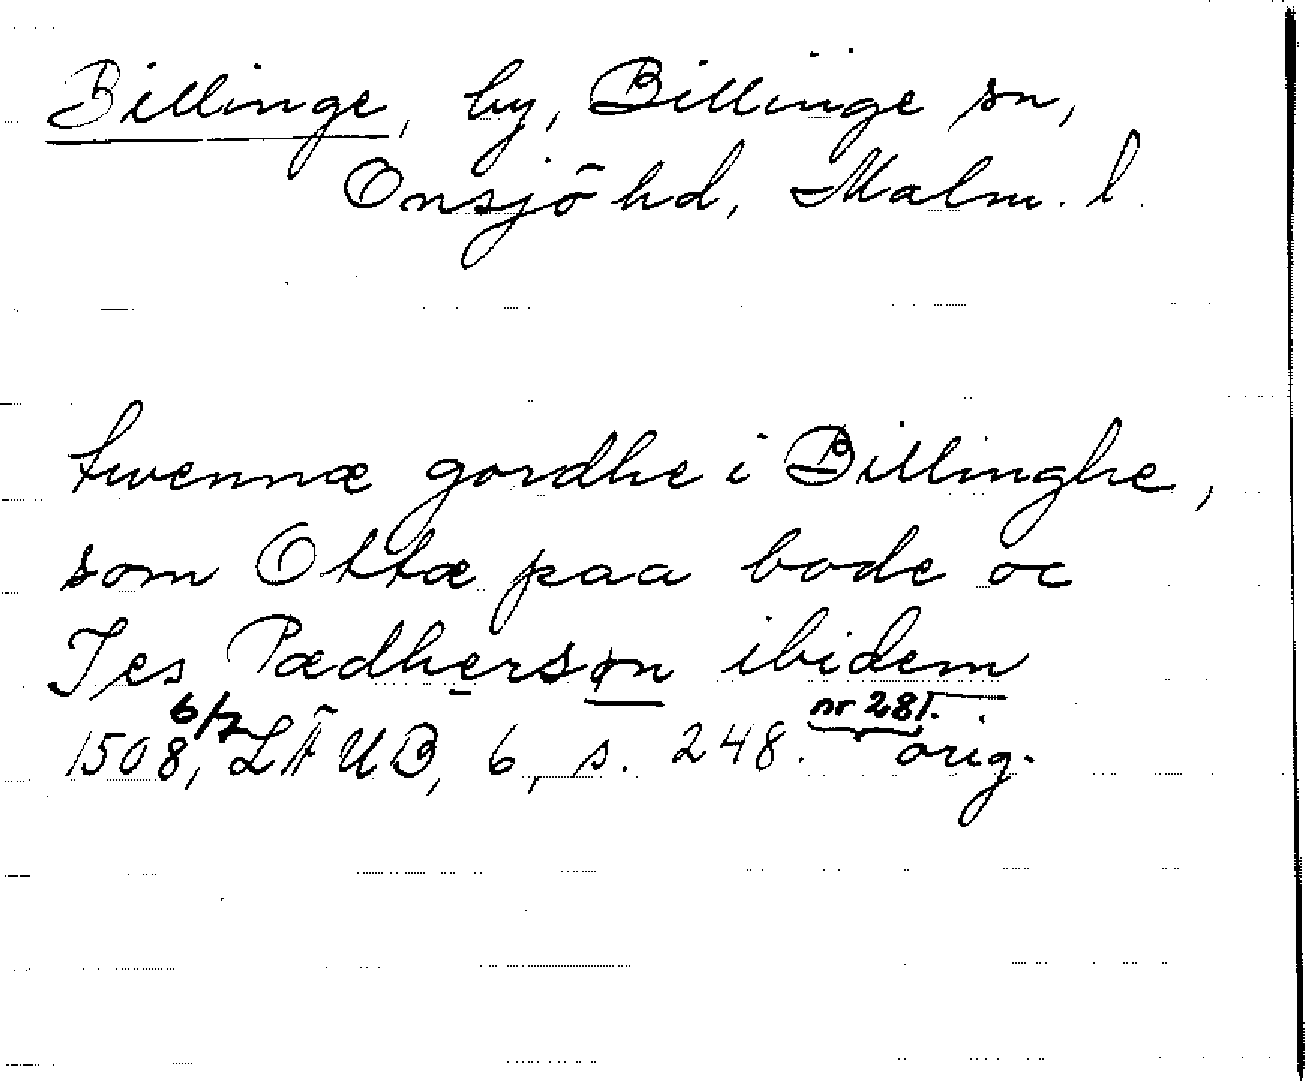 Billinge, by, Billinge sn,
Onsjö hd, Malm. l.
twennæ gordhe i Billinghe,
som Ottæ paa bode oc
Jes Pædhersøn ibidem
1508, 6/2 LÄUB, 6, s. 248. nr 281. orig.